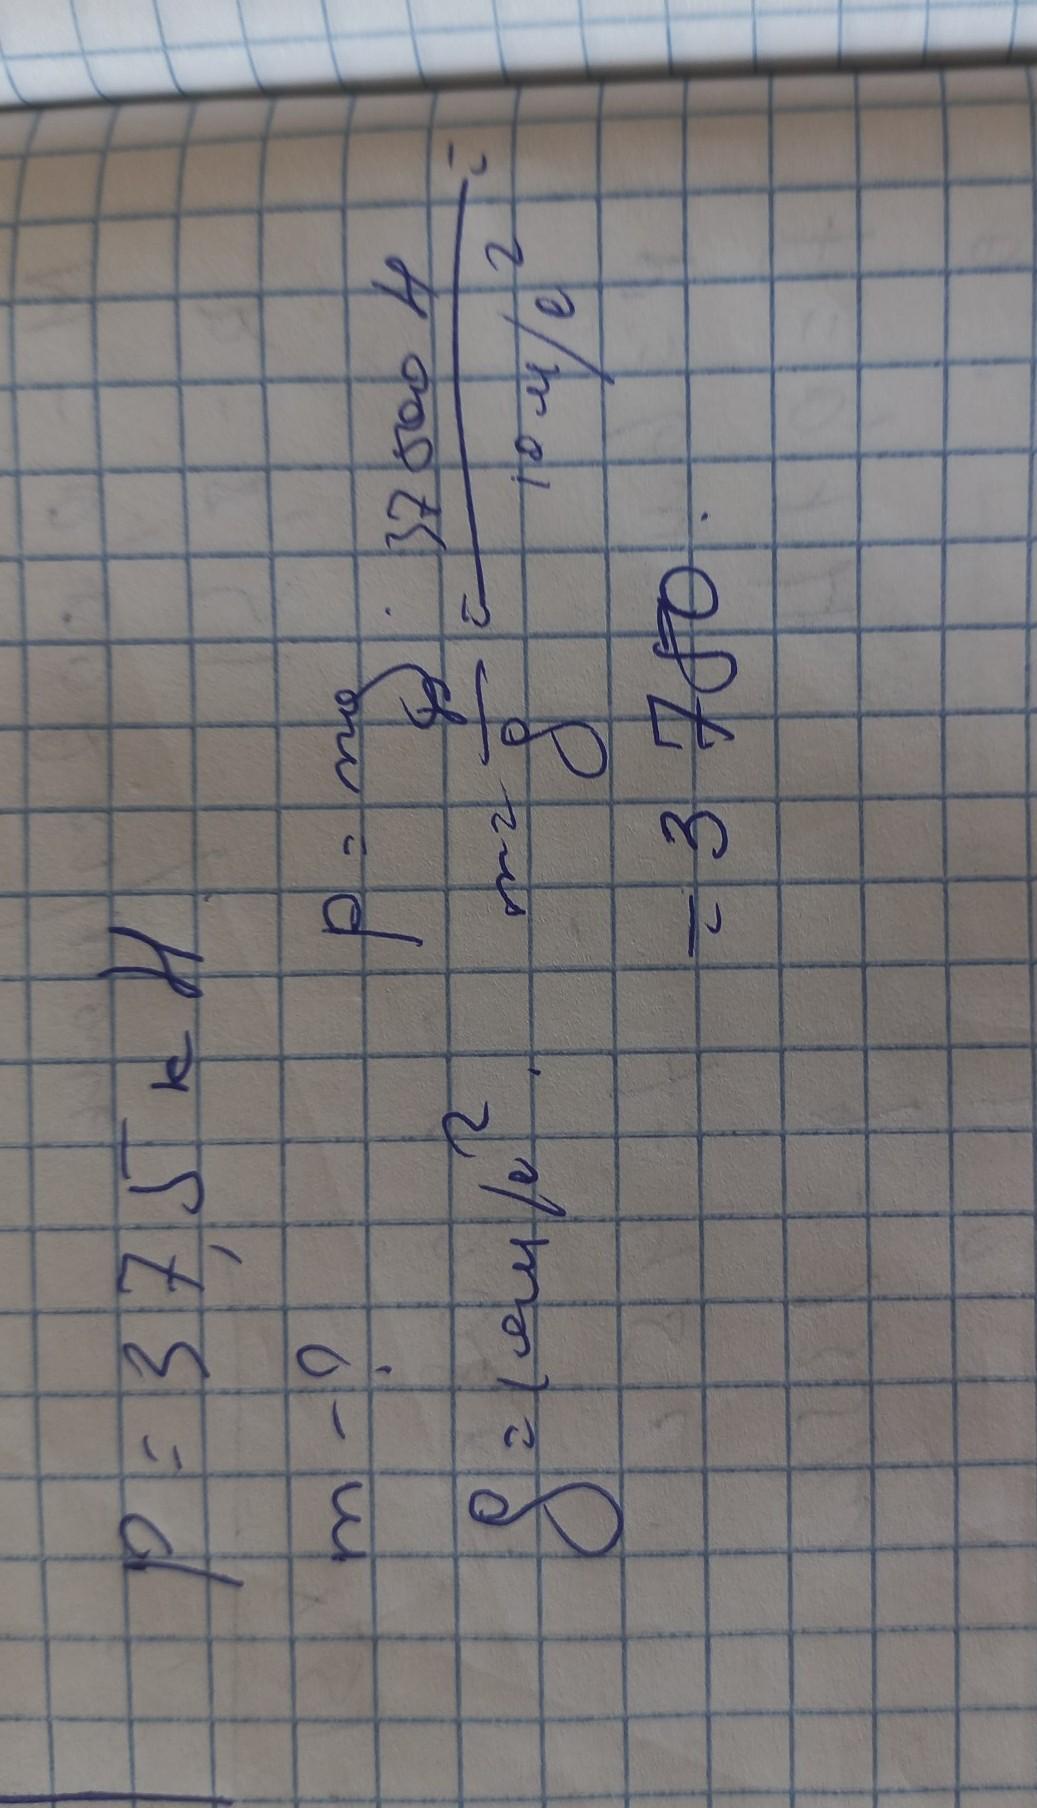 P = 37,5 кН
m - ?
g = 10 м/с²
P = mg
m = P/g = 37500 Н / 10 м/с² =
= 3750.